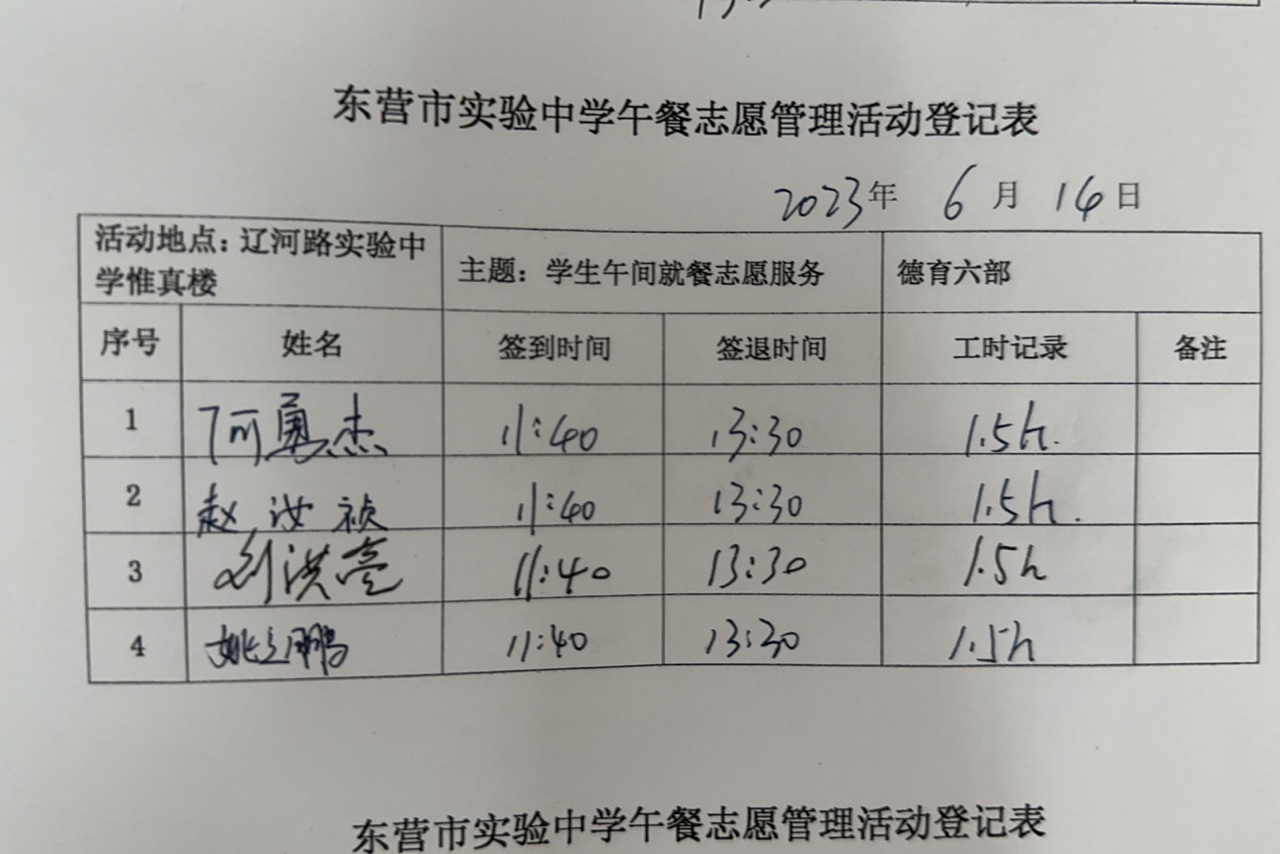 东营市实验中学午餐志愿管理活动登记表
2023年 6月 14日
活动地点：辽河路实验中学惟真楼 主题：学生午间就餐志愿服务 德育六部
序号 姓名 签到时间 签退时间 工时记录 备注
1 勇杰 11:40 13:30 1.5h.
2 赵汝祯 11:40 13:30 1.5h.
3 刘洪亮 11:40 13:30 1.5h
4 姚立鹏 11:40 13:30 1.5h
东营市实验中学午餐志愿管理活动登记表